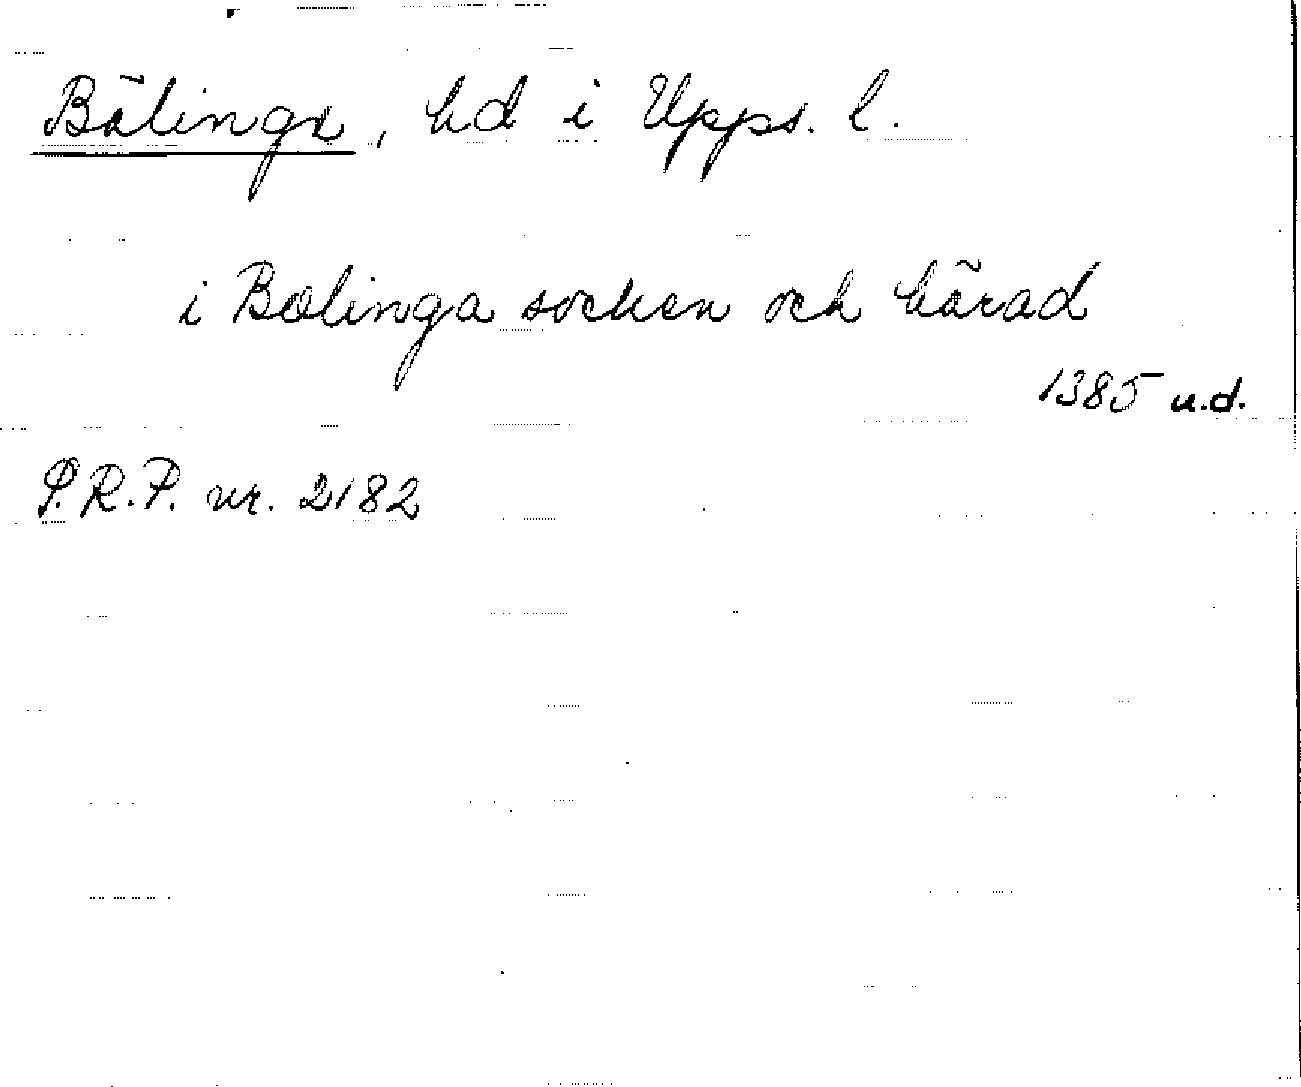 Bälinge, hd i Upps. l.
i Bælinga socken och härad
1385 u.d.
S.R.P. nr. 2182